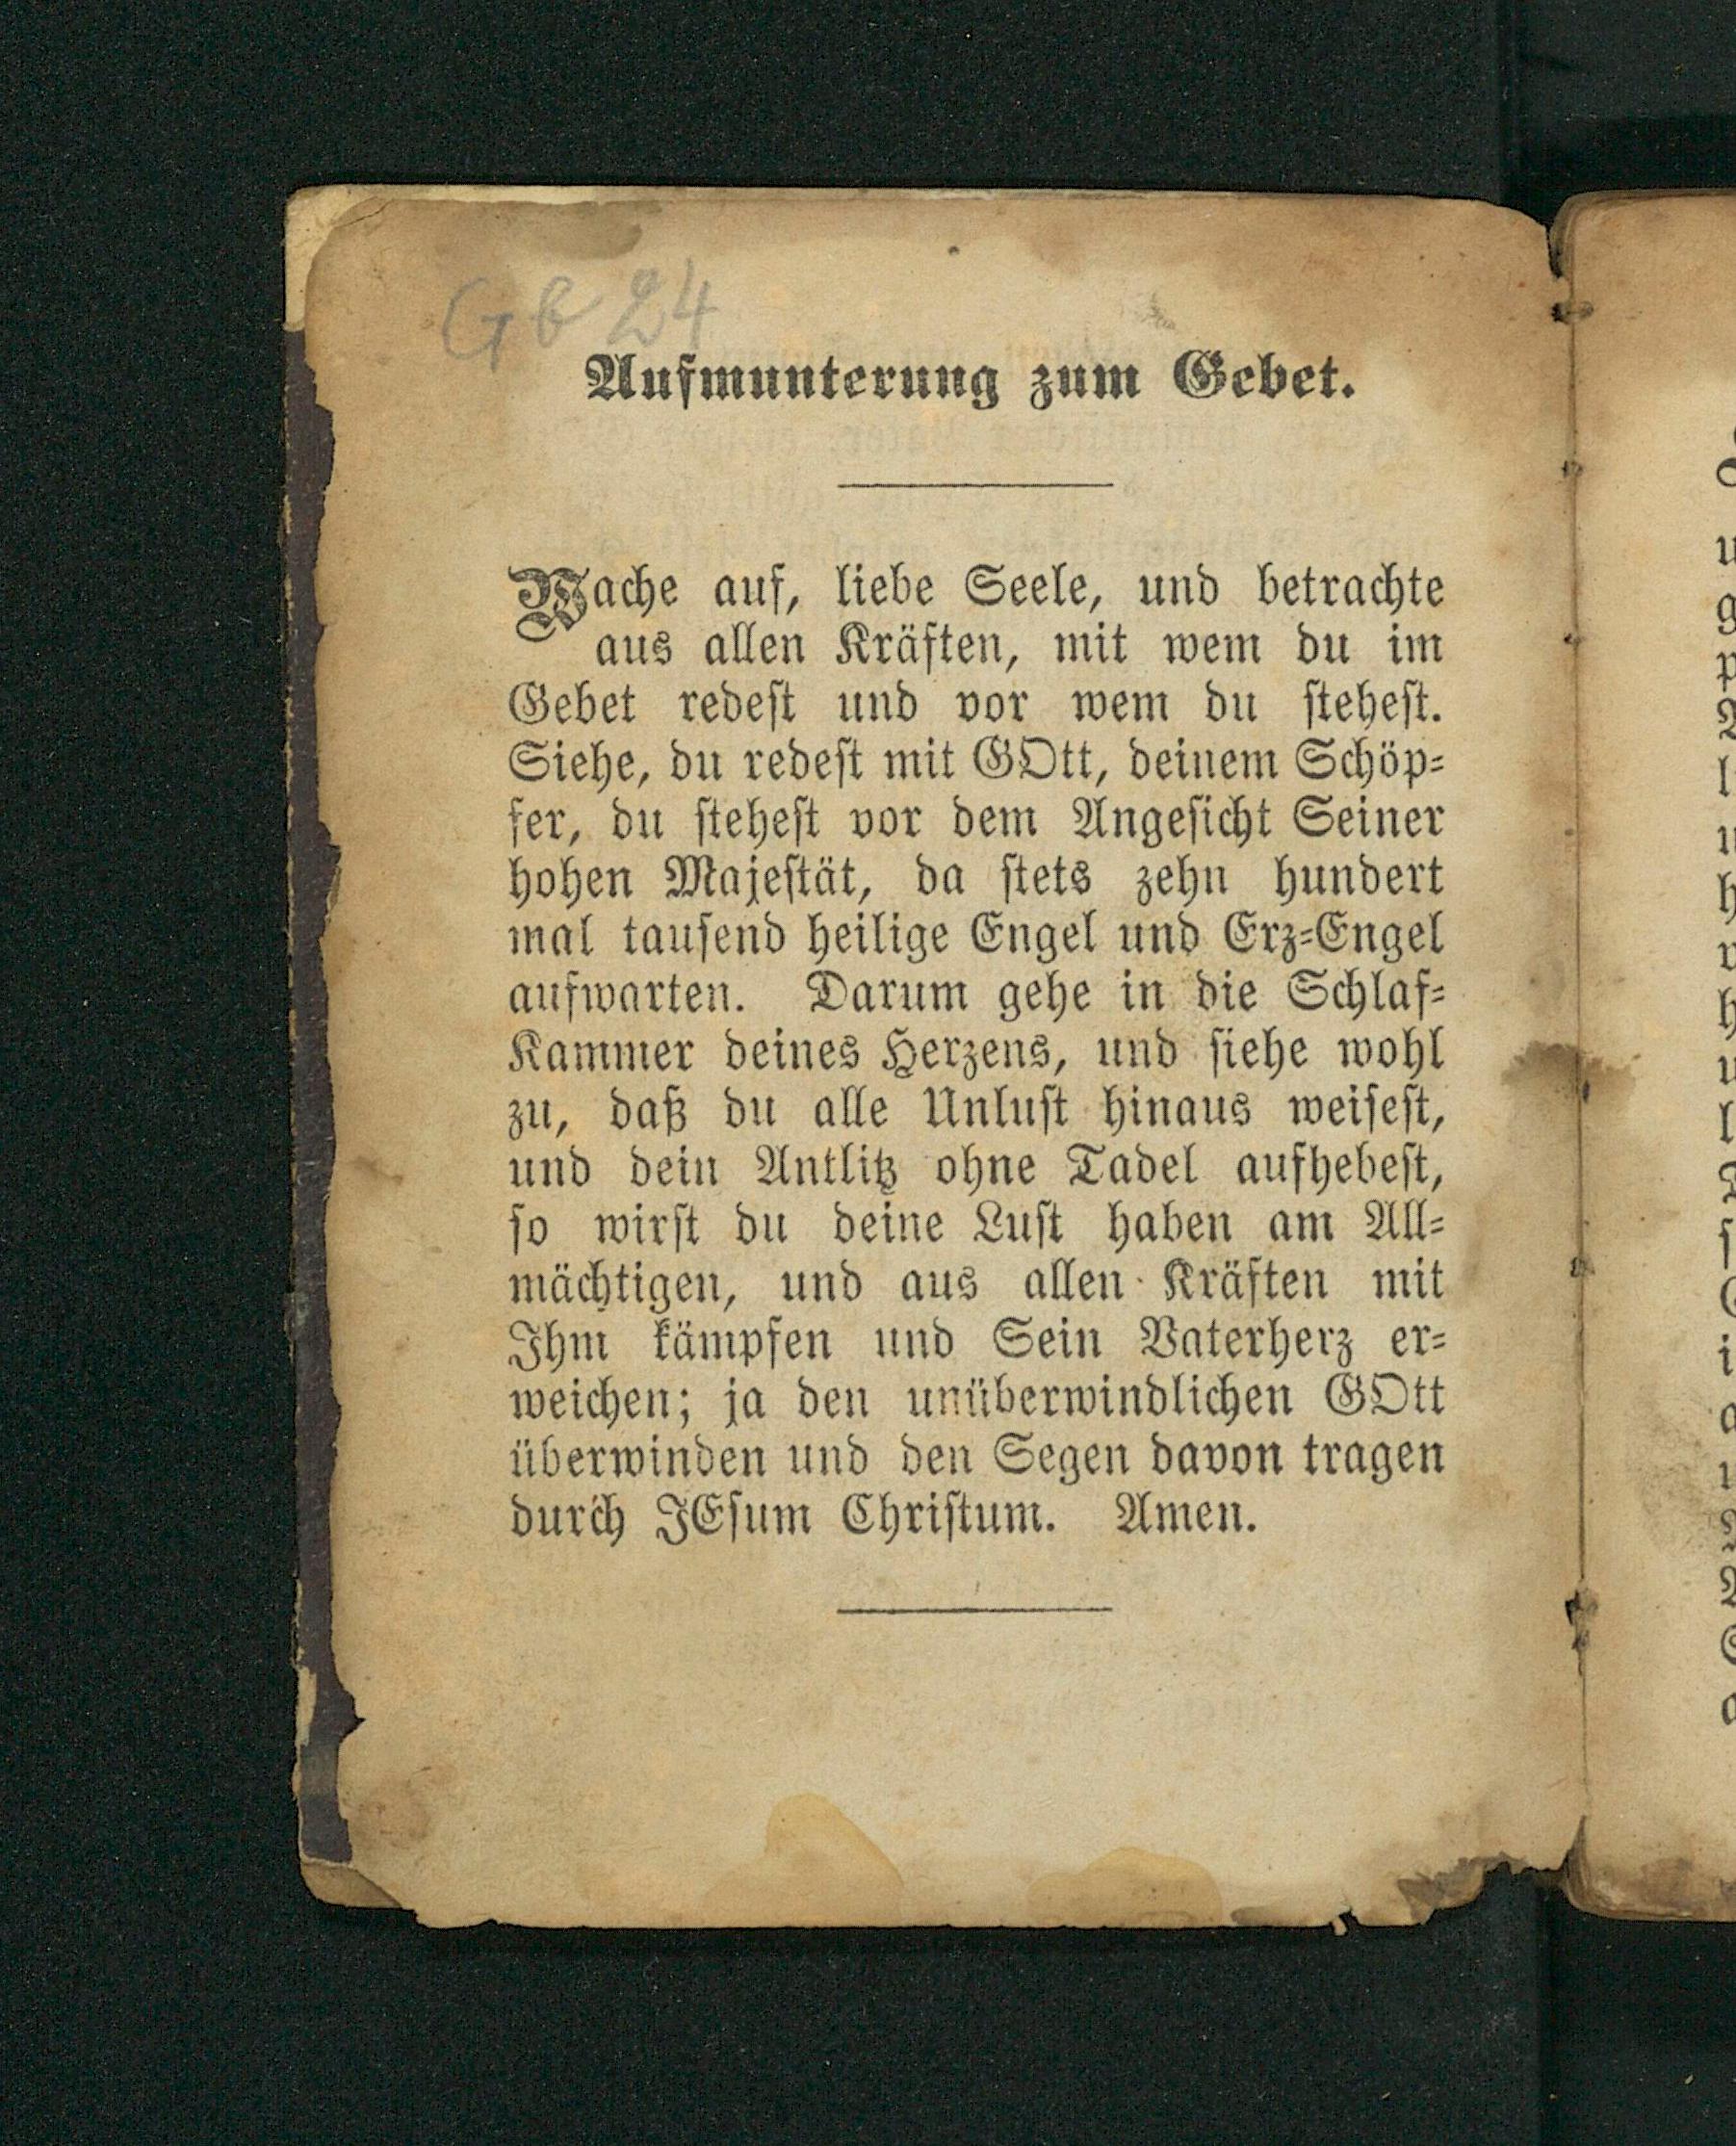 Gb 24
Aufmunterung zum Gebet.
Wache auf, liebe Seele, und betrachte
aus allen Kräften, mit wem du im
Gebet redest und vor wem du stehest.
Siehe, du redest mit GOtt, deinem Schöp-
fer, du stehest vor dem Angesicht Seiner
hohen Majestät, da stets zehn hundert
mal tausend heilige Engel und Erz-Engel
aufwarten. Darum gehe in die Schlaf-
Kammer deines Herzens, und siehe wohl
zu, daß du alle Unlust hinaus weisest,
und dein Antlitz ohne Tadel aufhebest,
so wirst du deine Lust haben am All-
mächtigen, und aus allen Kräften mit
Ihm kämpfen und Sein Vaterherz er-
weichen; ja den unüberwindlichen GOtt
überwinden und den Segen davon tragen
durch JEsum Christum. Amen.